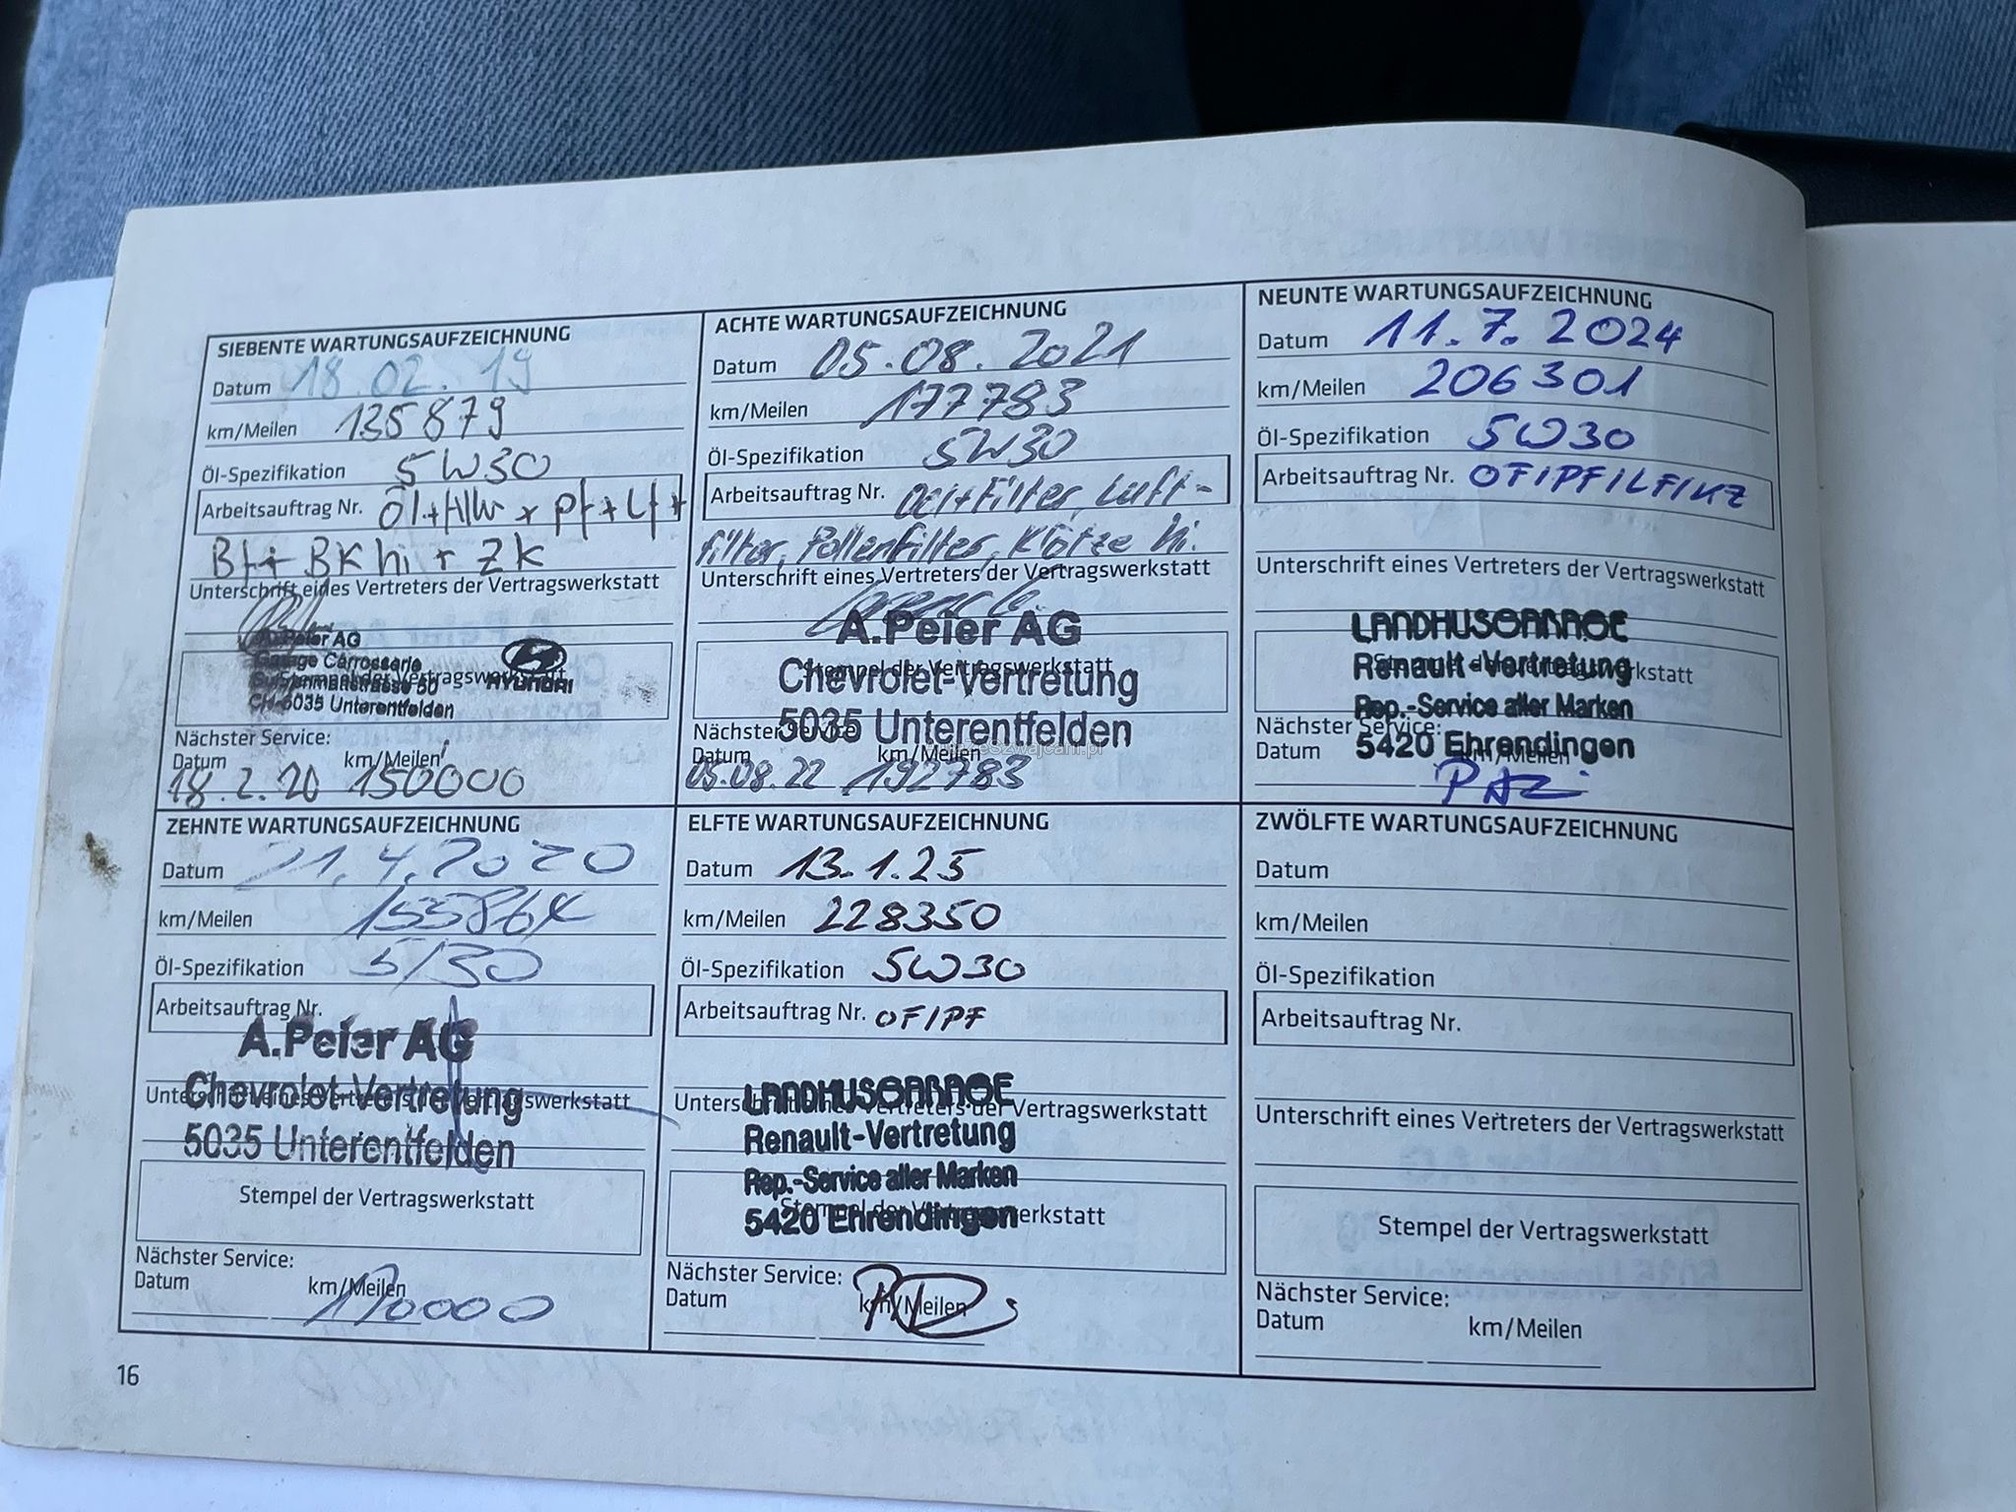 SIEBENTE WARTUNGSAUFZEICHNUNG
Datum 18.02.19
km/Meilen 135879
Öl-Spezifikation 5W30
Arbeitsauftrag Nr. Öl+filter + pf + Lf +
Bf+ BK hi + ZK
Unterschrift eines Vertreters der Vertragswerkstatt
A.Peier AG
Garage Carrosserie
HYUNDAI
CH-5035 Unterentfelden
Nächster Service:
Datum km/Meilen
18.2.20 150000
ACHTE WARTUNGSAUFZEICHNUNG
Datum 05.08.2021
km/Meilen 177783
Öl-Spezifikation 5W30
Arbeitsauftrag Nr. Oel+Filter, Luft-
filter, Pollenfilter, Klötze hi.
Unterschrift eines Vertreters der Vertragswerkstatt
A.Peier AG
Stempel der Vertragswerkstatt
Chevrolet-Vertretung
5035 Unterentfelden
Nächster Service
Datum km/Meilen
05.08.22 192783
NEUNTE WARTUNGSAUFZEICHNUNG
Datum 11.7.2024
km/Meilen 206301
Öl-Spezifikation 5W30
Arbeitsauftrag Nr. OF/PF/LF/KZ
Unterschrift eines Vertreters der Vertragswerkstatt
LANDHUSGARAGE
Renault-Vertretung
Rep.-Service aller Marken
Nächster Service:
5420 Ehrendingen
Datum km/Meilen
ZEHNTE WARTUNGSAUFZEICHNUNG
Datum 21.4.2020
km/Meilen 155864
Öl-Spezifikation 5/30
Arbeitsauftrag Nr.
A.Peier AG
Chevrolet-Vertretung
Unterschrift eines Vertreters der Vertragswerkstatt
5035 Unterentfelden
Stempel der Vertragswerkstatt
Nächster Service:
Datum km/Meilen
170000
ELFTE WARTUNGSAUFZEICHNUNG
Datum 13.1.25
km/Meilen 228350
Öl-Spezifikation 5W30
Arbeitsauftrag Nr. OF/PF
LANDHUSGARAGE
Unterschrift eines Vertreters der Vertragswerkstatt
Renault-Vertretung
Rep.-Service aller Marken
Stempel der Vertragswerkstatt
5420 Ehrendingen
Nächster Service:
Datum km/Meilen
ZWÖLFTE WARTUNGSAUFZEICHNUNG
Datum
km/Meilen
Öl-Spezifikation
Arbeitsauftrag Nr.
Unterschrift eines Vertreters der Vertragswerkstatt
Stempel der Vertragswerkstatt
Nächster Service:
Datum km/Meilen
16